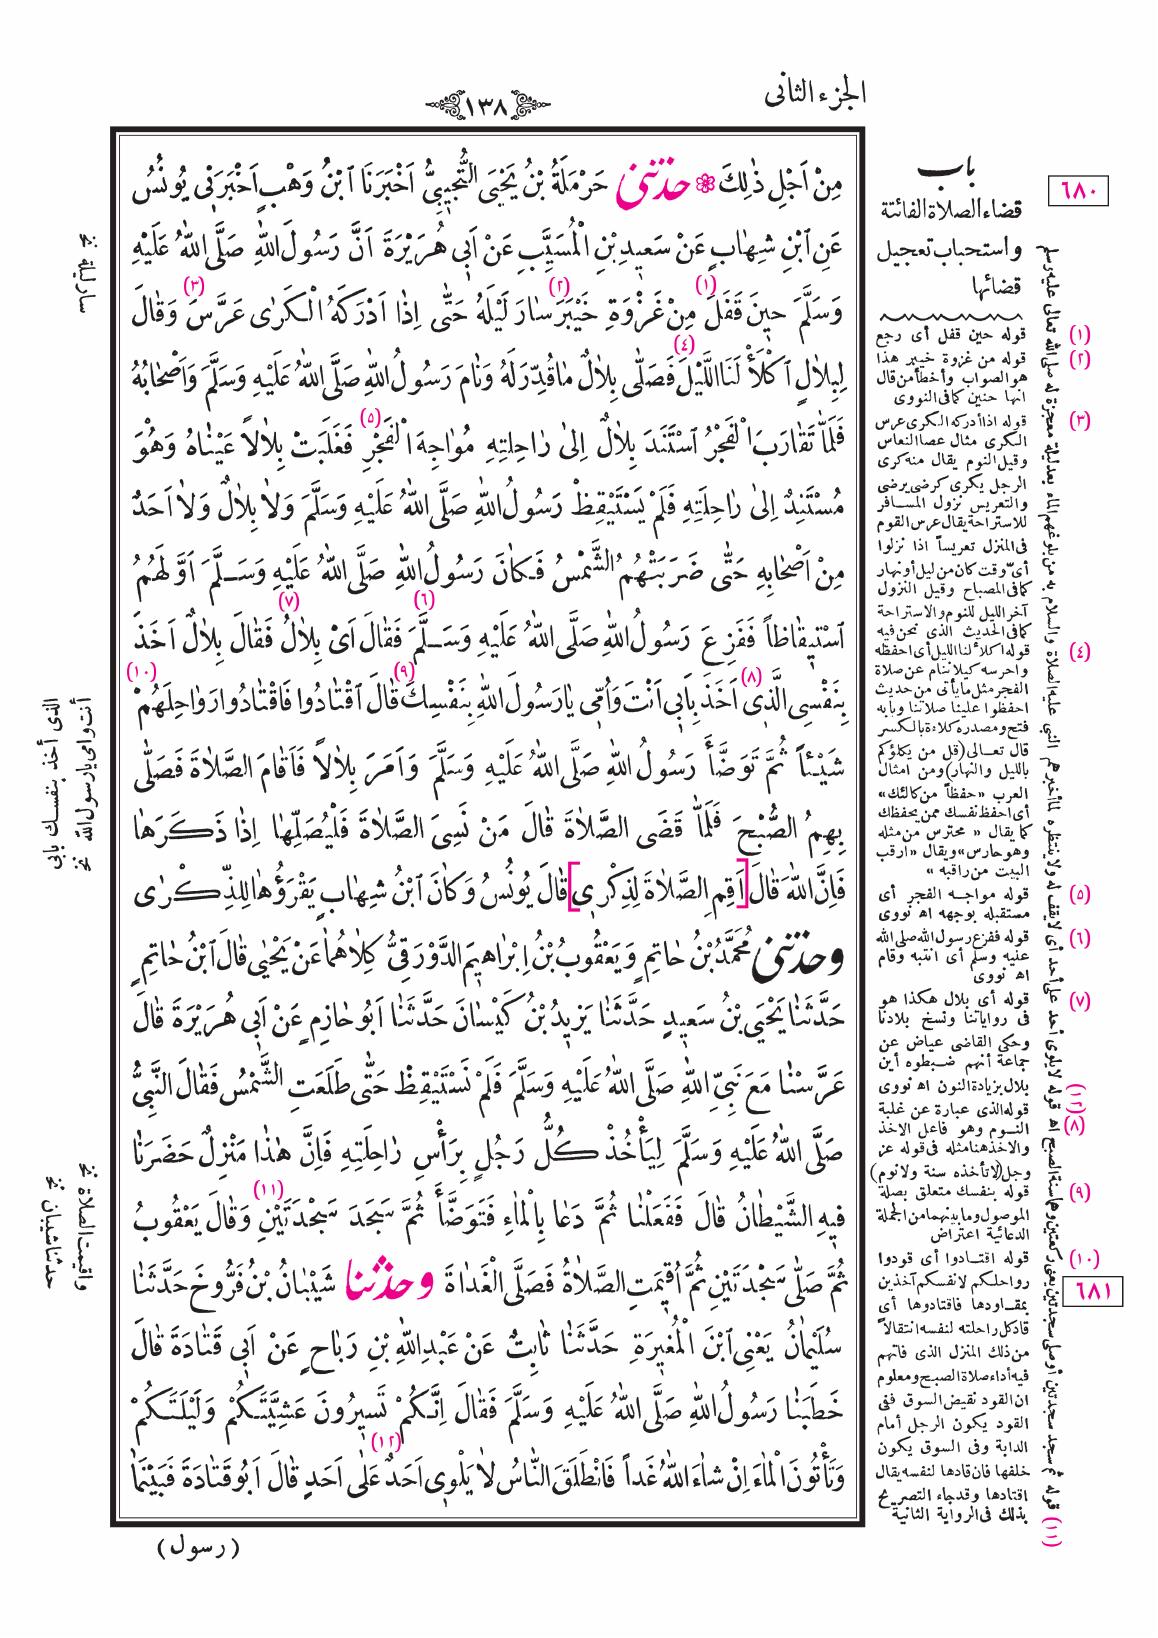 الجزء الثانى
١٣٨
مِنْ اَجْلِ ذٰلِكَ ❁ حَدَّثَنِى حَرْمَلَةُ بْنُ يَحْيَى التُّجِيبِىُّ اَخْبَرَنَا ابْنُ وَهْبٍ اَخْبَرَنِى يُونُسُ
عَنِ ابْنِ شِهَابٍ عَنْ سَعِيدِ بْنِ الْمُسَيَّبِ عَنْ اَبِى هُرَيْرَةَ اَنَّ رَسُولَ اللّٰهِ صَلَّى اللّٰهُ عَلَيْهِ
وَسَلَّمَ حِينَ قَفَلَ (١) مِنْ غَزْوَةِ خَيْبَرَ (٢) سَارَ لَيْلَهُ حَتّٰى اِذَا اَدْرَكَهُ الْكَرٰى عَرَّسَ (٣) وَقَالَ
لِبِلَالٍ اكْلَأْ لَنَا اللَّيْلَ (٤) فَصَلّٰى بِلَالٌ مَا قُدِّرَ لَهُ وَنَامَ رَسُولُ اللّٰهِ صَلَّى اللّٰهُ عَلَيْهِ وَسَلَّمَ وَاَصْحَابُهُ
فَلَمَّا تَقَارَبَ الْفَجْرُ اسْتَنَدَ بِلَالٌ اِلٰى رَاحِلَتِهِ مُوَاجِهَ الْفَجْرِ (٥) فَغَلَبَتْ بِلَالاً عَيْنَاهُ وَهُوَ
مُسْتَنِدٌ اِلٰى رَاحِلَتِهِ فَلَمْ يَسْتَيْقِظْ رَسُولُ اللّٰهِ صَلَّى اللّٰهُ عَلَيْهِ وَسَلَّمَ وَلَا بِلَالٌ وَلَا اَحَدٌ
مِنْ اَصْحَابِهِ حَتّٰى ضَرَبَتْهُمُ الشَّمْسُ فَكَانَ رَسُولُ اللّٰهِ صَلَّى اللّٰهُ عَلَيْهِ وَسَلَّمَ اَوَّلَهُمُ
اسْتِيقَاظاً فَفَزِعَ رَسُولُ اللّٰهِ صَلَّى اللّٰهُ عَلَيْهِ وَسَلَّمَ (٦) فَقَالَ اَىْ بِلَالُ (٧) فَقَالَ بِلَالٌ اَخَذَ
بِنَفْسِى الَّذِى (٨) اَخَذَ بِاَبِى اَنْتَ وَاُمِّى يَا رَسُولَ اللّٰهِ بِنَفْسِكَ (٩) قَالَ اقْتَادُوا فَاقْتَادُوا رَوَاحِلَهُمْ (١٠)
شَيْئاً ثُمَّ تَوَضَّأَ رَسُولُ اللّٰهِ صَلَّى اللّٰهُ عَلَيْهِ وَسَلَّمَ وَاَمَرَ بِلَالاً فَاَقَامَ الصَّلَاةَ فَصَلّٰى
بِهِمُ الصُّبْحَ فَلَمَّا قَضَى الصَّلَاةَ قَالَ مَنْ نَسِىَ الصَّلَاةَ فَلْيُصَلِّهَا اِذَا ذَكَرَهَا
فَاِنَّ اللّٰهَ قَالَ [اَقِمِ الصَّلَاةَ لِذِكْرِى] قَالَ يُونُسُ وَكَانَ ابْنُ شِهَابٍ يَقْرَؤُهَا لِلذِّكْرٰى
وَحَدَّثَنِى مُحَمَّدُ بْنُ حَاتِمٍ وَيَعْقُوبُ بْنُ اِبْرَاهِيمَ الدَّوْرَقِىُّ كِلَاهُمَا عَنْ يَحْيٰى قَالَ ابْنُ حَاتِمٍ
حَدَّثَنَا يَحْيَى بْنُ سَعِيدٍ حَدَّثَنَا يَزِيدُ بْنُ كَيْسَانَ حَدَّثَنَا اَبُو حَازِمٍ عَنْ اَبِى هُرَيْرَةَ قَالَ
عَرَّسْنَا مَعَ نَبِىِّ اللّٰهِ صَلَّى اللّٰهُ عَلَيْهِ وَسَلَّمَ فَلَمْ نَسْتَيْقِظْ حَتّٰى طَلَعَتِ الشَّمْسُ فَقَالَ النَّبِىُّ
صَلَّى اللّٰهُ عَلَيْهِ وَسَلَّمَ لِيَأْخُذْ كُلُّ رَجُلٍ بِرَأْسِ رَاحِلَتِهِ فَاِنَّ هٰذَا مَنْزِلٌ حَضَرَنَا
فِيهِ الشَّيْطَانُ قَالَ فَفَعَلْنَا ثُمَّ دَعَا بِالْمَاءِ فَتَوَضَّأَ ثُمَّ سَجَدَ سَجْدَتَيْنِ (١١) وَقَالَ يَعْقُوبُ
ثُمَّ صَلّٰى سَجْدَتَيْنِ ثُمَّ اُقِيمَتِ الصَّلَاةُ فَصَلَّى الْغَدَاةَ وَحَدَّثَنَا شَيْبَانُ بْنُ فَرُّوخَ حَدَّثَنَا
سُلَيْمَانُ يَعْنِى ابْنَ الْمُغِيرَةِ حَدَّثَنَا ثَابِتٌ عَنْ عَبْدِ اللّٰهِ بْنِ رَبَاحٍ عَنْ اَبِى قَتَادَةَ قَالَ
خَطَبَنَا رَسُولُ اللّٰهِ صَلَّى اللّٰهُ عَلَيْهِ وَسَلَّمَ فَقَالَ اِنَّكُمْ تَسِيرُونَ عَشِيَّتَكُمْ وَلَيْلَتَكُمْ
وَتَأْتُونَ الْمَاءَ اِنْ شَاءَ اللّٰهُ غَداً فَانْطَلَقَ النَّاسُ لَا يَلْوِى اَحَدٌ (١٢) عَلٰى اَحَدٍ قَالَ اَبُو قَتَادَةَ فَبَيْنَمَا
(رسول)
باب
قضاء الصلاة الفائتة
واستحباب تعجيل
قضائها
٦٨٠
(١) قوله حين قفل أى رجع
(٢) قوله من غزوة خيبر هذا
هو الصواب وأخطأ من قال
انها حنين كما فى النووى
(٣) قوله اذا أدركه الكرى عرس
الكرى مثال عصا النعاس
وقيل النوم يقال منه كرى
الرجل يكرى كرضى يرضى
والتعريس نزول المسافر
للاستراحة يقال عرس القوم
فى المنزل تعريساً اذا نزلوا
أىّ وقت كان من ليل أو نهار
كما فى المصباح وقيل النزول
آخر الليل للنوم والاستراحة
كما فى الحديث الذى نحن فيه
(٤) قوله اكلأ لنا الليل أى احفظه
واحرسه كيلا ننام عن صلاة
الفجر مثل ما يأتى من حديث
احفظوا علينا صلاتنا وبابه
فتح ومصدره كلاءة بالكسر
قال تعالى (قل من يكلؤكم
بالليل والنهار) ومن امثال
العرب «حفظاً من كالئك»
أى احفظ نفسك ممن يحفظك
كما يقال « محترس من مثله
وهو حارس» ويقال «ارقب
البيت من راقبه »
(٥) قوله مواجه الفجر أى
مستقبله بوجهه اه نووى
(٦) قوله ففزع رسول الله صلى الله
عليه وسلم أى انتبه وقام
اه نووى
(٧) قوله أى بلال هكذا هو
فى رواياتنا ونسخ بلادنا
وحكى القاضى عياض عن
جماعة أنهم ضبطوه أين
بلال بزيادة النون اه نووى
(٨) قوله الذى عبارة عن غلبة
النوم وهو فاعل الاخذ
والاخذ هنا مثله فى قوله عز
وجل (لا تأخذه سنة ولا نوم)
(٩) قوله بنفسك متعلق بصلة
الموصول وما بينهما من الجملة
الدعائية اعتراض
(١٠) قوله اقتادوا أى قودوا
رواحلكم لانفسكم آخذين
بمقاودها فاقتادوها أى
قاد كل راحلته لنفسه انتقالاً
من ذلك المنزل الذى فاتهم
فيه أداء صلاة الصبح ومعلوم
ان القود نقيض السوق ففى
القود يكون الرجل أمام
الدابة وفى السوق يكون
خلفها فان قادها لنفسه يقال
اقتادها وقد جاء التصريح
بذلك فى الرواية الثانية
٦٨١
(١١) قوله ثم سجد سجدتين أو صلى سجدتين يعنى ركعتين وهما سنة الصبح اه (١٢) قوله لا يلوى أحد على أحد أى لا يقف له ولا ينتظره لما أخبرهم النبى عليه الصلاة والسلام به من بلوغهم الماء بعد ليلته معجزة له صلى الله تعالى عليه وسلم
سار ليلة نخ
الذى أخذ بنفسك بابى
أنت وامى يا رسول الله نخ
واقيمت الصلاة نخ
حدثنا شيبان نخ